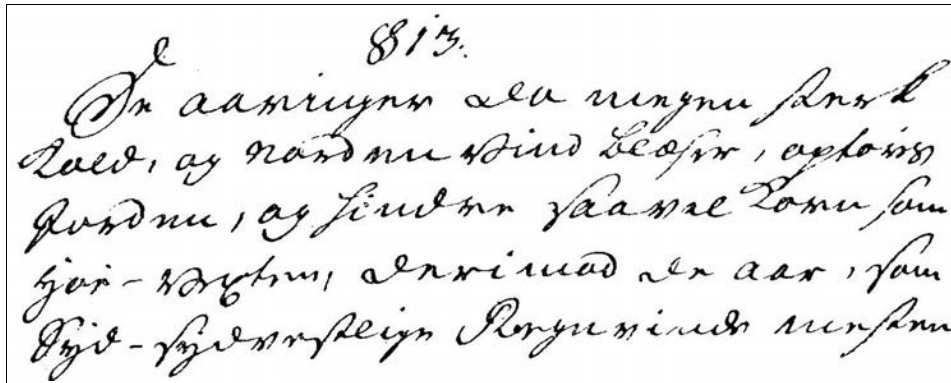 § 13.
De aaringer da megen sterk
Kold, og Norden Vind blæser, optøris
Jorden, og hindre saavel Korn som
Høe-Vexten, derimod de aar, som
Syd-sydvestlige Regnvinde mesten